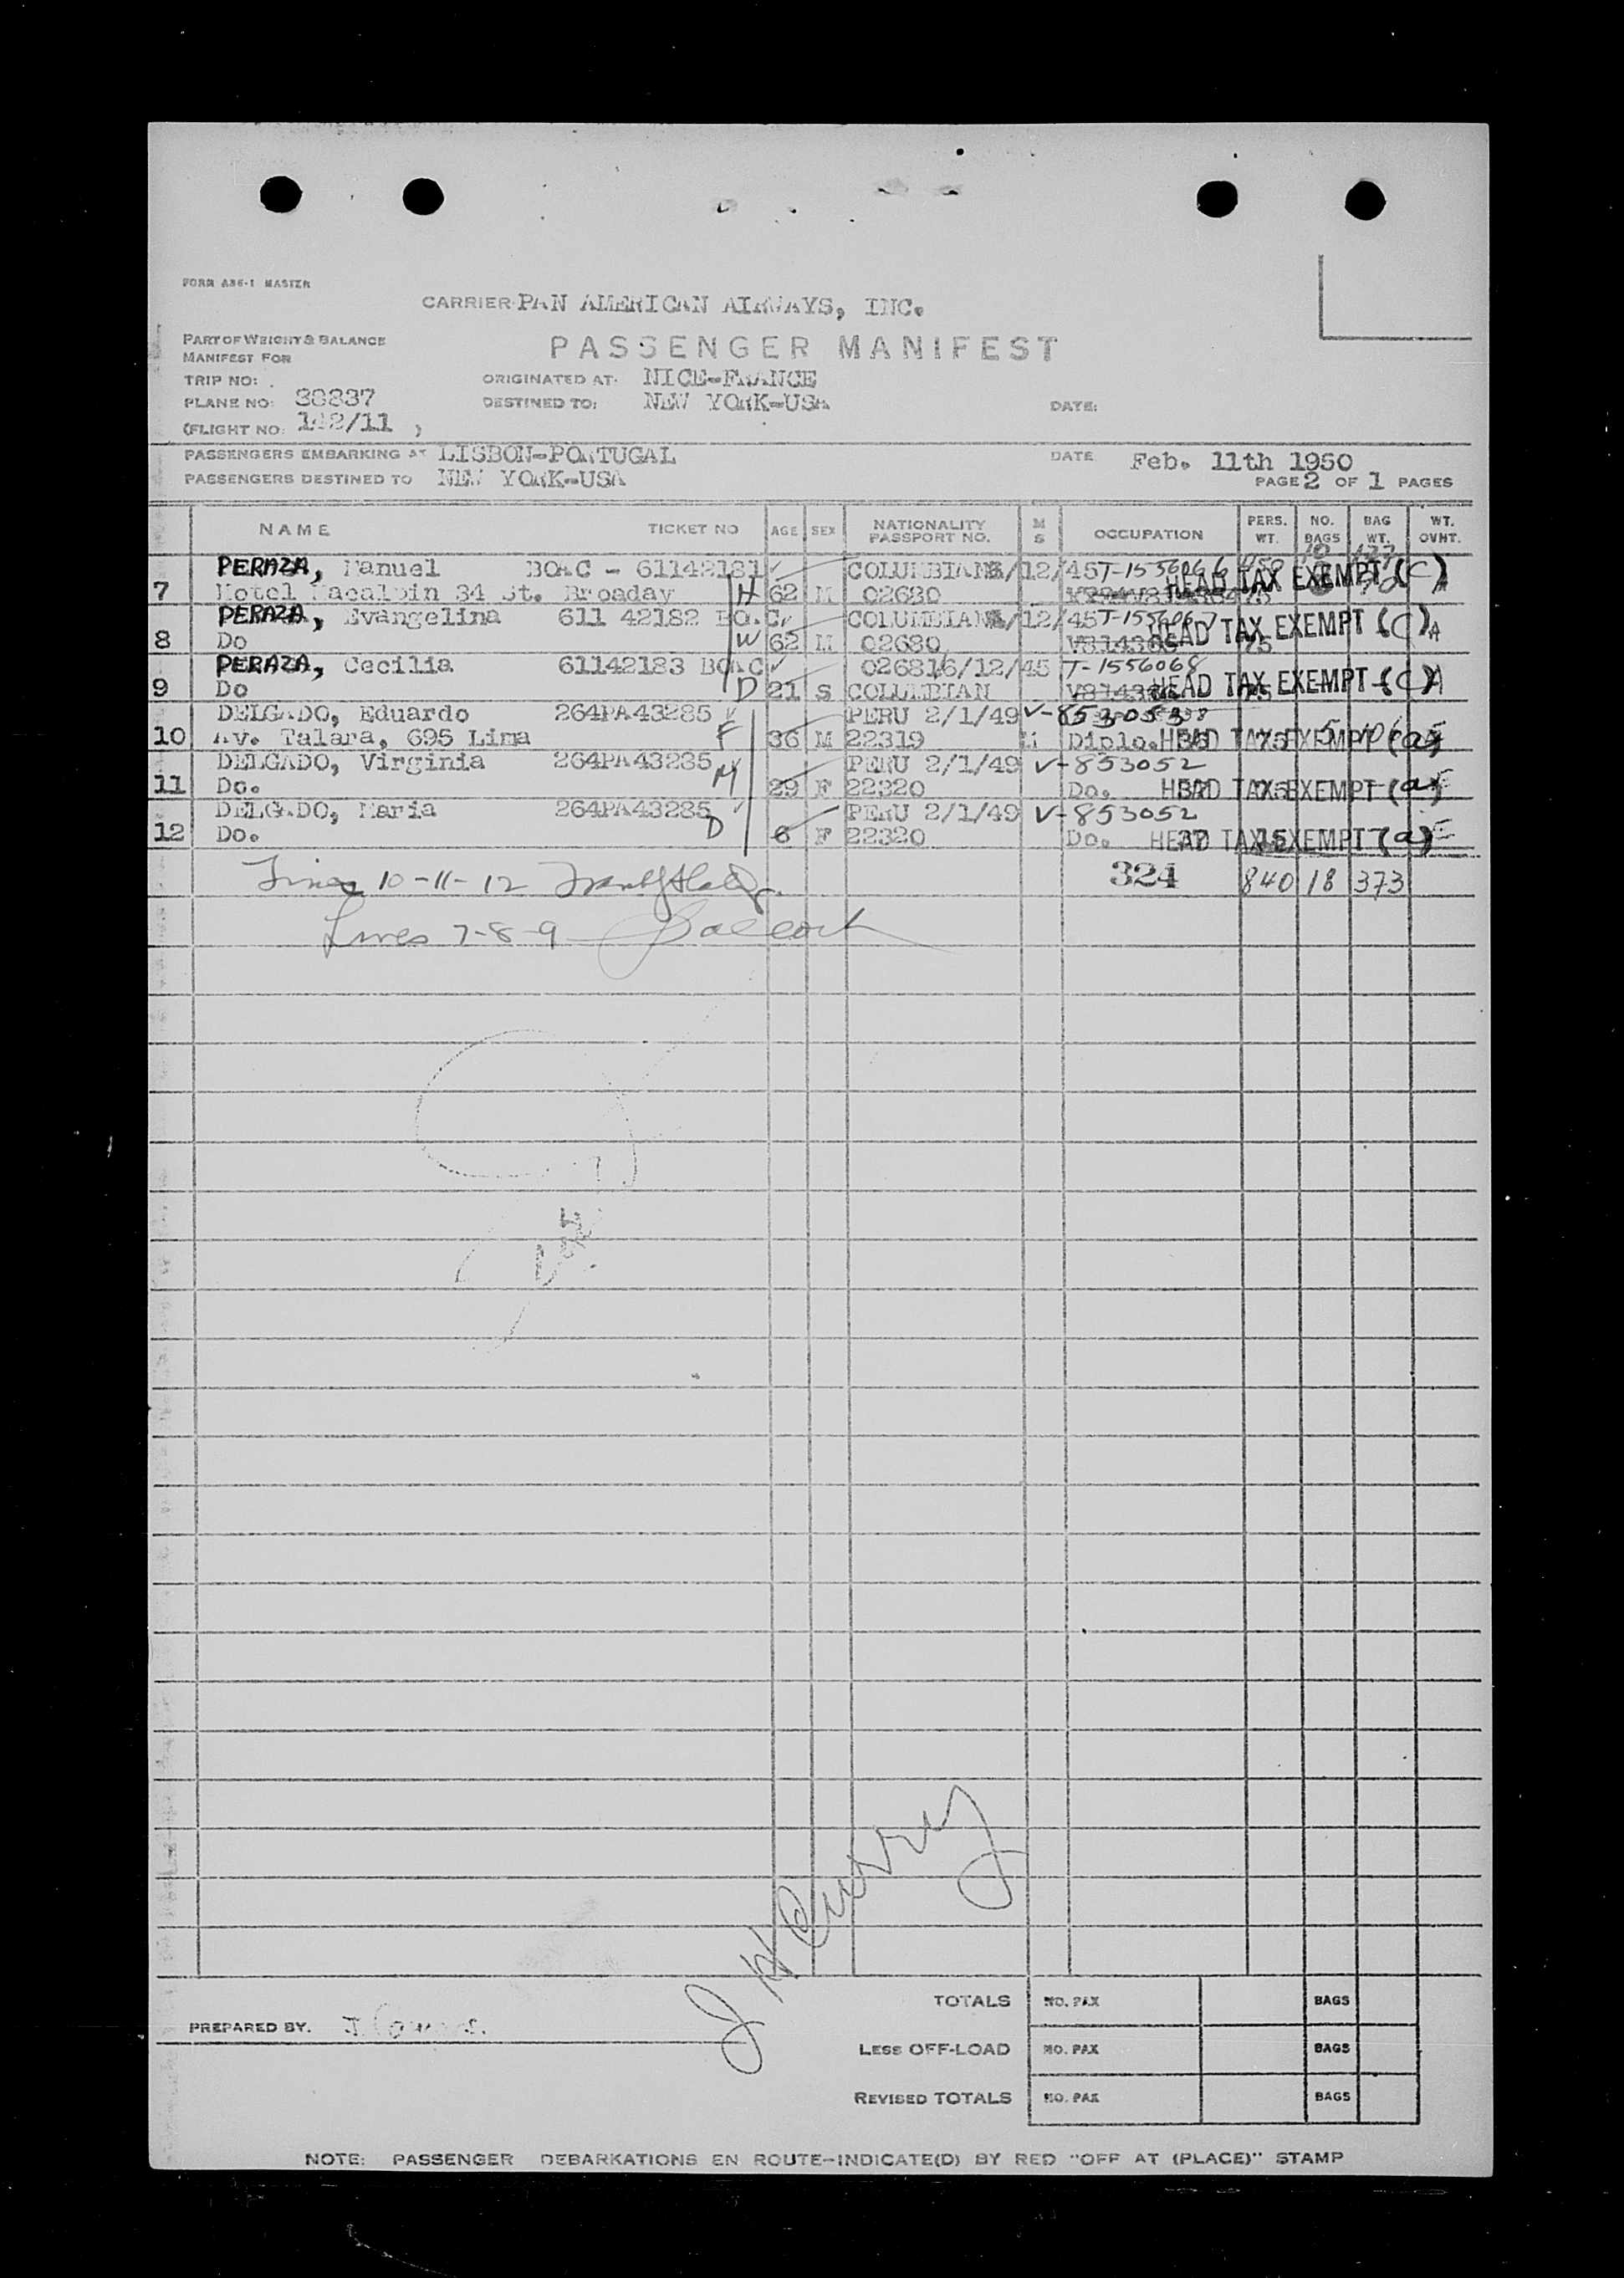 FORM A86-1 MASTER
CARRIER: PAN AMERICAN AIRWAYS, INC.
PART OF WEIGHT & BALANCE
MANIFEST FOR
PASSENGER MANIFEST
TRIP NO:
ORIGINATED AT: NICE-FRANCE
PLANE NO:
DESTINED TO: NEW YORK-USA
DATE:
(FLIGHT NO: 142/11 )
PASSENGERS EMBARKING AT LISBON-PORTUGAL
DATE Feb. 11th 1950
PASSENGERS DESTINED TO NEW YORK-USA
PAGE 2 OF 1 PAGES
NAME TICKET NO AGE SEX NATIONALITY PASSPORT NO. M S OCCUPATION PERS. WT. NO. BAGS BAG WT. WT. OVHT.
PERAZA, Manuel BOAC - 61142181 COLUMBIAN /12/45 T-1556066
7 Hotel Macalpin 34 St. Broaday H 62 M 02680 HEAD TAX EXEMPT (C)
PERAZA, Evangelina 611 42182 BOAC COLUMBIAN /12/45
8 Do W 62 M 02680 HEAD TAX EXEMPT (C)
PERAZA, Cecilia 61142183 BOAC 02681 6/12/45 T-1556068
9 Do D 21 S COLUMBIAN HEAD TAX EXEMPT (C)
DELGADO, Eduardo 264PA43285 PERU 2/1/49
10 Av. Talara, 695 Lima F 36 M 22319 M Diplo. HEAD TAX EXEMPT (a)
DELGADO, Virginia 264PA43285 PERU 2/1/49 V-853052
11 Do. M 29 F 22320 Do. HEAD TAX EXEMPT (a)
DELGADO, Maria 264PA43285 PERU 2/1/49 V-853052
12 Do. D 6 F 22320 Do. HEAD TAX EXEMPT (a)
Lines 10-11-12 324 840 18 373
Lines 7-8-9
J H Curry
TOTALS NO. PAX BAGS
PREPARED BY.
LESS OFF-LOAD NO. PAX BAGS
REVISED TOTALS NO. PAX BAGS
NOTE: PASSENGER DEBARKATIONS EN ROUTE-INDICATE(D) BY RED "OFF AT (PLACE)" STAMP